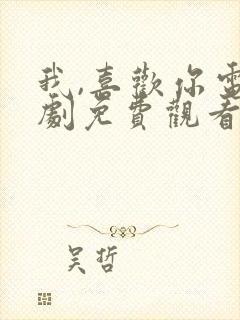 我,喜歡你電
劇免費觀看
吴哲